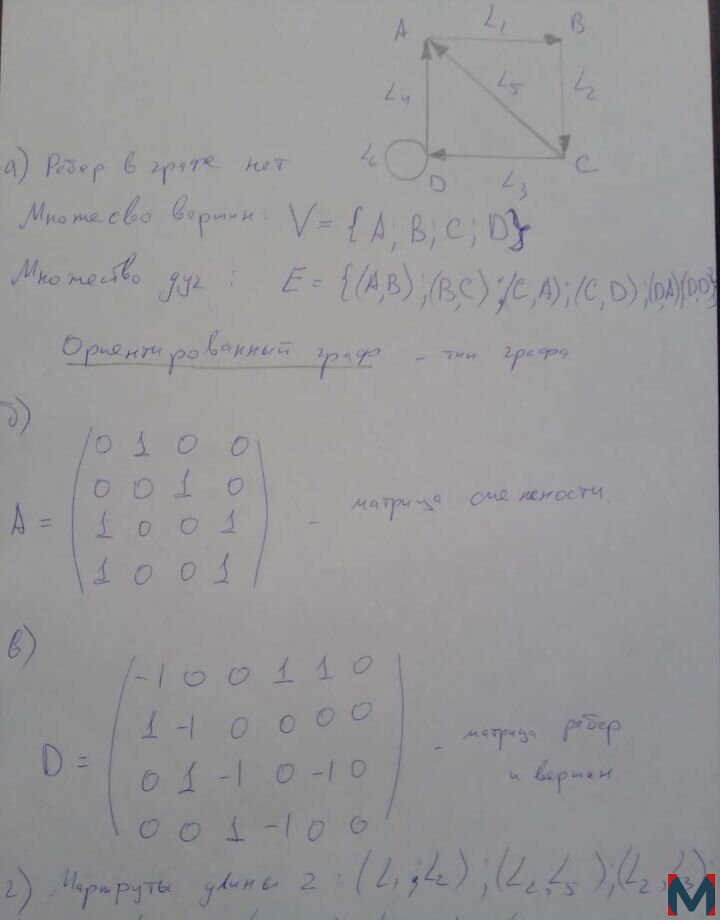 A L₁ B
L₄ L₅ L₂
L₆ D L₃ C
а) Ребер в графе нет
Множесво вершин: V = {A; B; C; D}
Множество дуг : E = {(A,B);(B,C);(C,A);(C,D);(D,A)(D,D)}
Ориентированный граф - тип графа
б)
A = (0 1 0 0
0 0 1 0
1 0 0 1
1 0 0 1) - матрица смежности.
в)
D = (-1 0 0 1 1 0
1 -1 0 0 0 0
0 1 -1 0 -1 0
0 0 1 -1 0 0) - матрица ребер
и вершин
г) Маршруты длины 2 : (L₁;L₂);(L₂,L₅);(L₂,L₃);
M